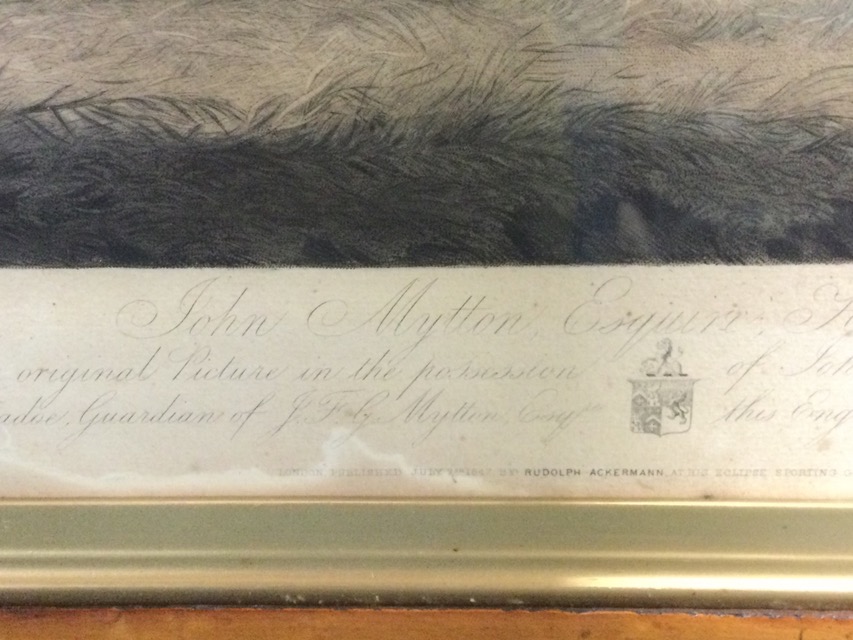 John Mytton, Esquire,
original Picture in the possession of
Guardian of J. F. G. Mytton Esqr. this
LONDON PUBLISHED JULY BY RUDOLPH ACKERMANN, AT HIS ECLIPSE SPORTING